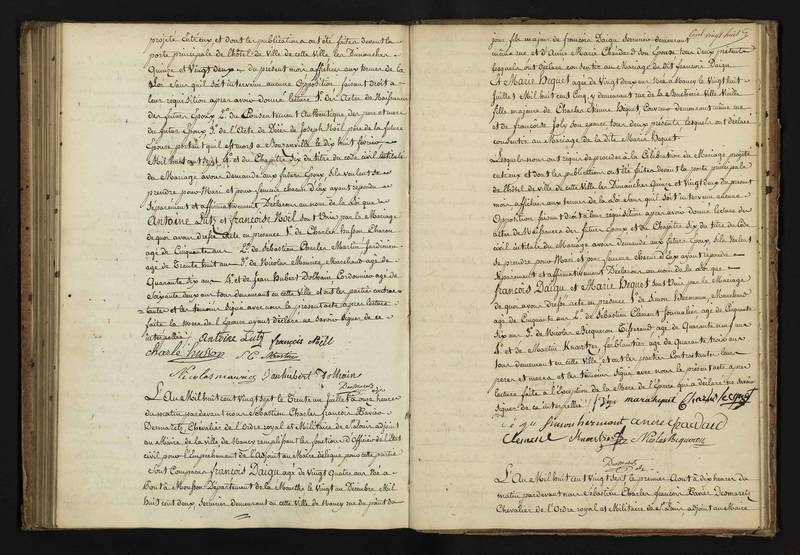 projeté entr'eux et dont les publications ont été faites devant la
porte principale de l'hôtel de Ville de cette ville les Dimanches
Quinze et Vingt deux du present mois afficher aux termes de la
Loi sans qu'il soit intervenu aucune Opposition faisant droit à
leur requisition après avoir donné lecture 1° des Actes de Naissances
des futurs Epoux 2° du Consentement Authentique des pere et mere
du futur Epoux 3° de l'Acte de Décès de Joseph Noël père de la future
Epouse portant qu'il est mort à le dix huit fevrier
Mil huit cent sept 4° et du Chapitre Six du titre du code civil intitulé
du Mariage avons demandé aux futurs Epoux s'ils veulent se
prendre pour Mari et pour femme chacun d'Eux ayant répondu
séparément et affirmativement Déclarons au nom de la Loi que
Antoine Lutz et françoise Noël sont Unis par le Mariage
de quoi avons dressé acte en présence 1° de Charles husson Charon
agé de Cinquante ans 2° de Sébastien Charles Martin Jardinier
agé de Trente huit ans 3° de Nicolas Maurice Marchand agé de
Quarante Six ans 4° et de Jean Hubert Cordonnier agé de
Soixante deux ans tous demeurant en cette Ville et ont les parties contrac-
tantes et les témoins signé avec nous le present acte après lecture
faite la Mere de l'Epouse ayant déclaré ne savoir Signer de ce
interpellée Antoine Lutz françoise Noëll
Charle husson S C Martin
Nicolas maurice Jean hubert
Desmarets
L'An Mil huit cent Vingt sept le Trente un Juillet à onze heures
du matin pardevant nous Sébastien Charles françois Xavier
Desmarets, Chevalier de l'Ordre royal et Militaire de St Louis adjoint
au Maire de la ville de Nancy remplissant les fonctions d'Officier de l'Etat
civil pour l'Empêchement de l'adjoint au Maire délégué pour cette partie
Sont Comparus françois Daigu agé de Vingt Quatre ans Né à
Pont à Mousson Département de la Meurthe le Vingt un Décembre Mil
huit cent deux, Serrurier demeurant en cette Ville de Nancy rue du pont du
Cent vingt huit
jour fils majeur de françois Daigu Serrurier demeurant
même rue et d'Anne Marie son Epouse tous deux présents
lesquels ont déclaré consentir au Mariage du dit françois Daigu
Et Marie Hequet agée de Vingt deux ans Née à Nancy le Vingt huit
Juillet Mil huit cent Cinq y demeurant rue de la Ville
fille majeure de Charles Etienne Hequet, demeurant même rue
et de françoise Joly son epouse tous deux présents lesquels ont déclaré
consentir au Mariage de la dite Marie Hequet
Lesquels nous ont requis de proceder à la Célébration du Mariage projeté
entr'eux et dont les publications ont été faites devant la porte principale
de l'hôtel de Ville de cette Ville les Dimanches Quinze et Vingt deux du present
mois afficher aux termes de la Loi sans qu'il soit intervenu aucune
Opposition faisant droit à leur requisition apres avoir donné lecture des
actes de Naissances des futurs Epoux et du Chapitre Six du titre du Code
civil intitulé du Mariage avons demandé aux futurs Epoux s'ils veulent
se prendre pour Mari et pour femme chacun d'Eux ayant répondu
séparément et affirmativement Déclarons au nom de la Loi que
françois Daigu et Marie Hequet sont Unis par le Mariage
de quoi avons dressé acte en présence 1° de Simon Marchand
agé de Cinquante ans 2° de Sébastien Clement Journalier agé de Cinquante
Six ans 3° de Nicolas Begueron Tisserand agé de Quarante neuf ans
4° et de Martin ferblantier agé de Quarante trois ans
tous demeurant en cette Ville et ont les parties Contractantes leurs
peres et meres et les témoins signé avec nous le present acte apres
lecture faite à l'Exception de la Mere de l'Epouse qui a déclaré ne savoir
Signer de ce interpellée marie hequet Charles hequet
Clement Nicolas begueron
Desmarets
L'An Mil huit cent Vingt sept le premier Aout à dix heures du
matin pardevant nous Sébastien Charles françois Xavier Desmarets
Chevalier de l'Ordre royal et Militaire de St Louis adjoint au Maire